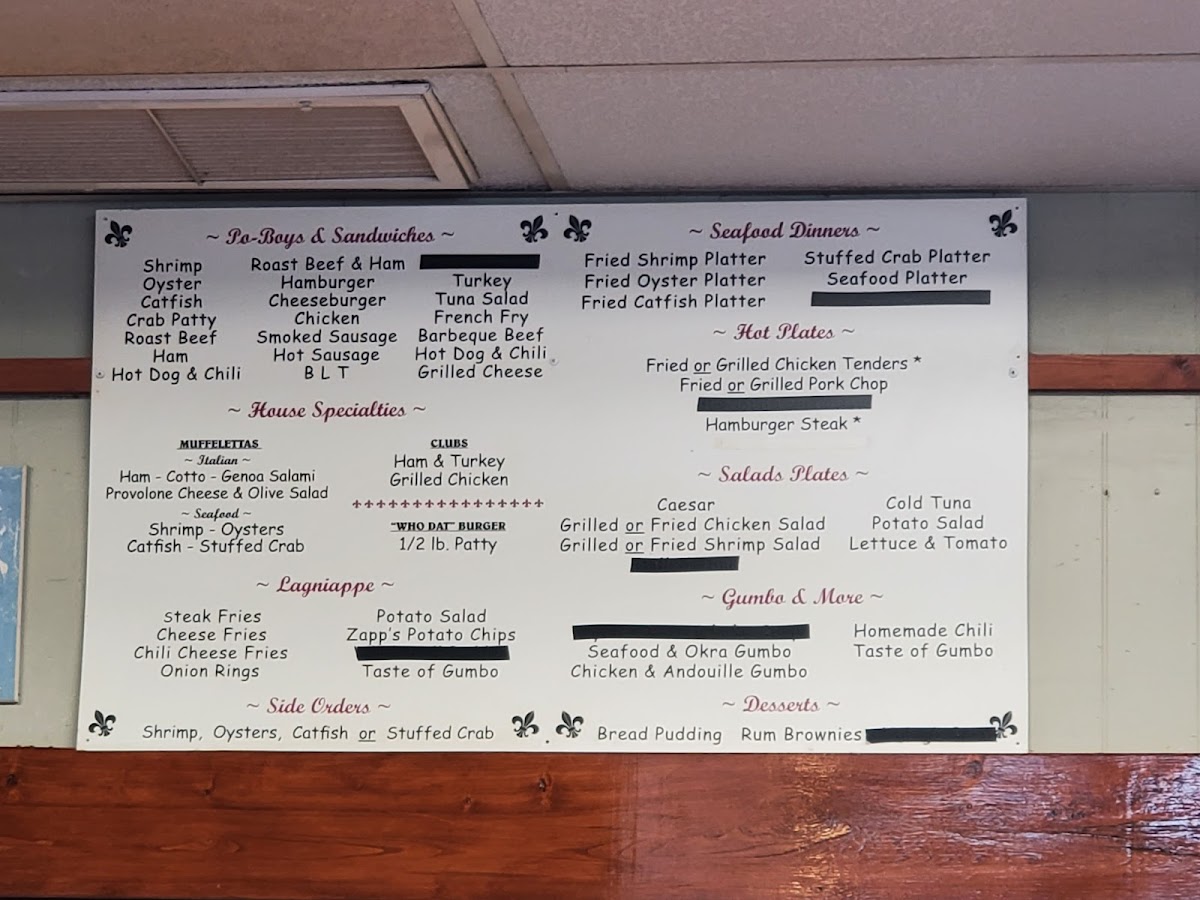 ~ Po-Boys & Sandwiches ~
Shrimp
Oyster
Catfish
Crab Patty
Roast Beef
Ham
Hot Dog & Chili
Roast Beef & Ham
Hamburger
Cheeseburger
Chicken
Smoked Sausage
Hot Sausage
B L T
Turkey
Tuna Salad
French Fry
Barbeque Beef
Hot Dog & Chili
Grilled Cheese
~ House Specialties ~
MUFFELETTAS
~ Italian ~
Ham - Cotto - Genoa Salami
Provolone Cheese & Olive Salad
~ Seafood ~
Shrimp - Oysters
Catfish - Stuffed Crab
CLUBS
Ham & Turkey
Grilled Chicken
"WHO DAT" BURGER
1/2 lb. Patty
~ Lagniappe ~
Steak Fries
Cheese Fries
Chili Cheese Fries
Onion Rings
Potato Salad
Zapp's Potato Chips
Taste of Gumbo
~ Side Orders ~
Shrimp, Oysters, Catfish or Stuffed Crab
~ Seafood Dinners ~
Fried Shrimp Platter
Fried Oyster Platter
Fried Catfish Platter
Stuffed Crab Platter
Seafood Platter
~ Hot Plates ~
Fried or Grilled Chicken Tenders *
Fried or Grilled Pork Chop
Hamburger Steak *
~ Salads Plates ~
Caesar
Grilled or Fried Chicken Salad
Grilled or Fried Shrimp Salad
Cold Tuna
Potato Salad
Lettuce & Tomato
~ Gumbo & More ~
Seafood & Okra Gumbo
Chicken & Andouille Gumbo
Homemade Chili
Taste of Gumbo
~ Desserts ~
Bread Pudding Rum Brownies